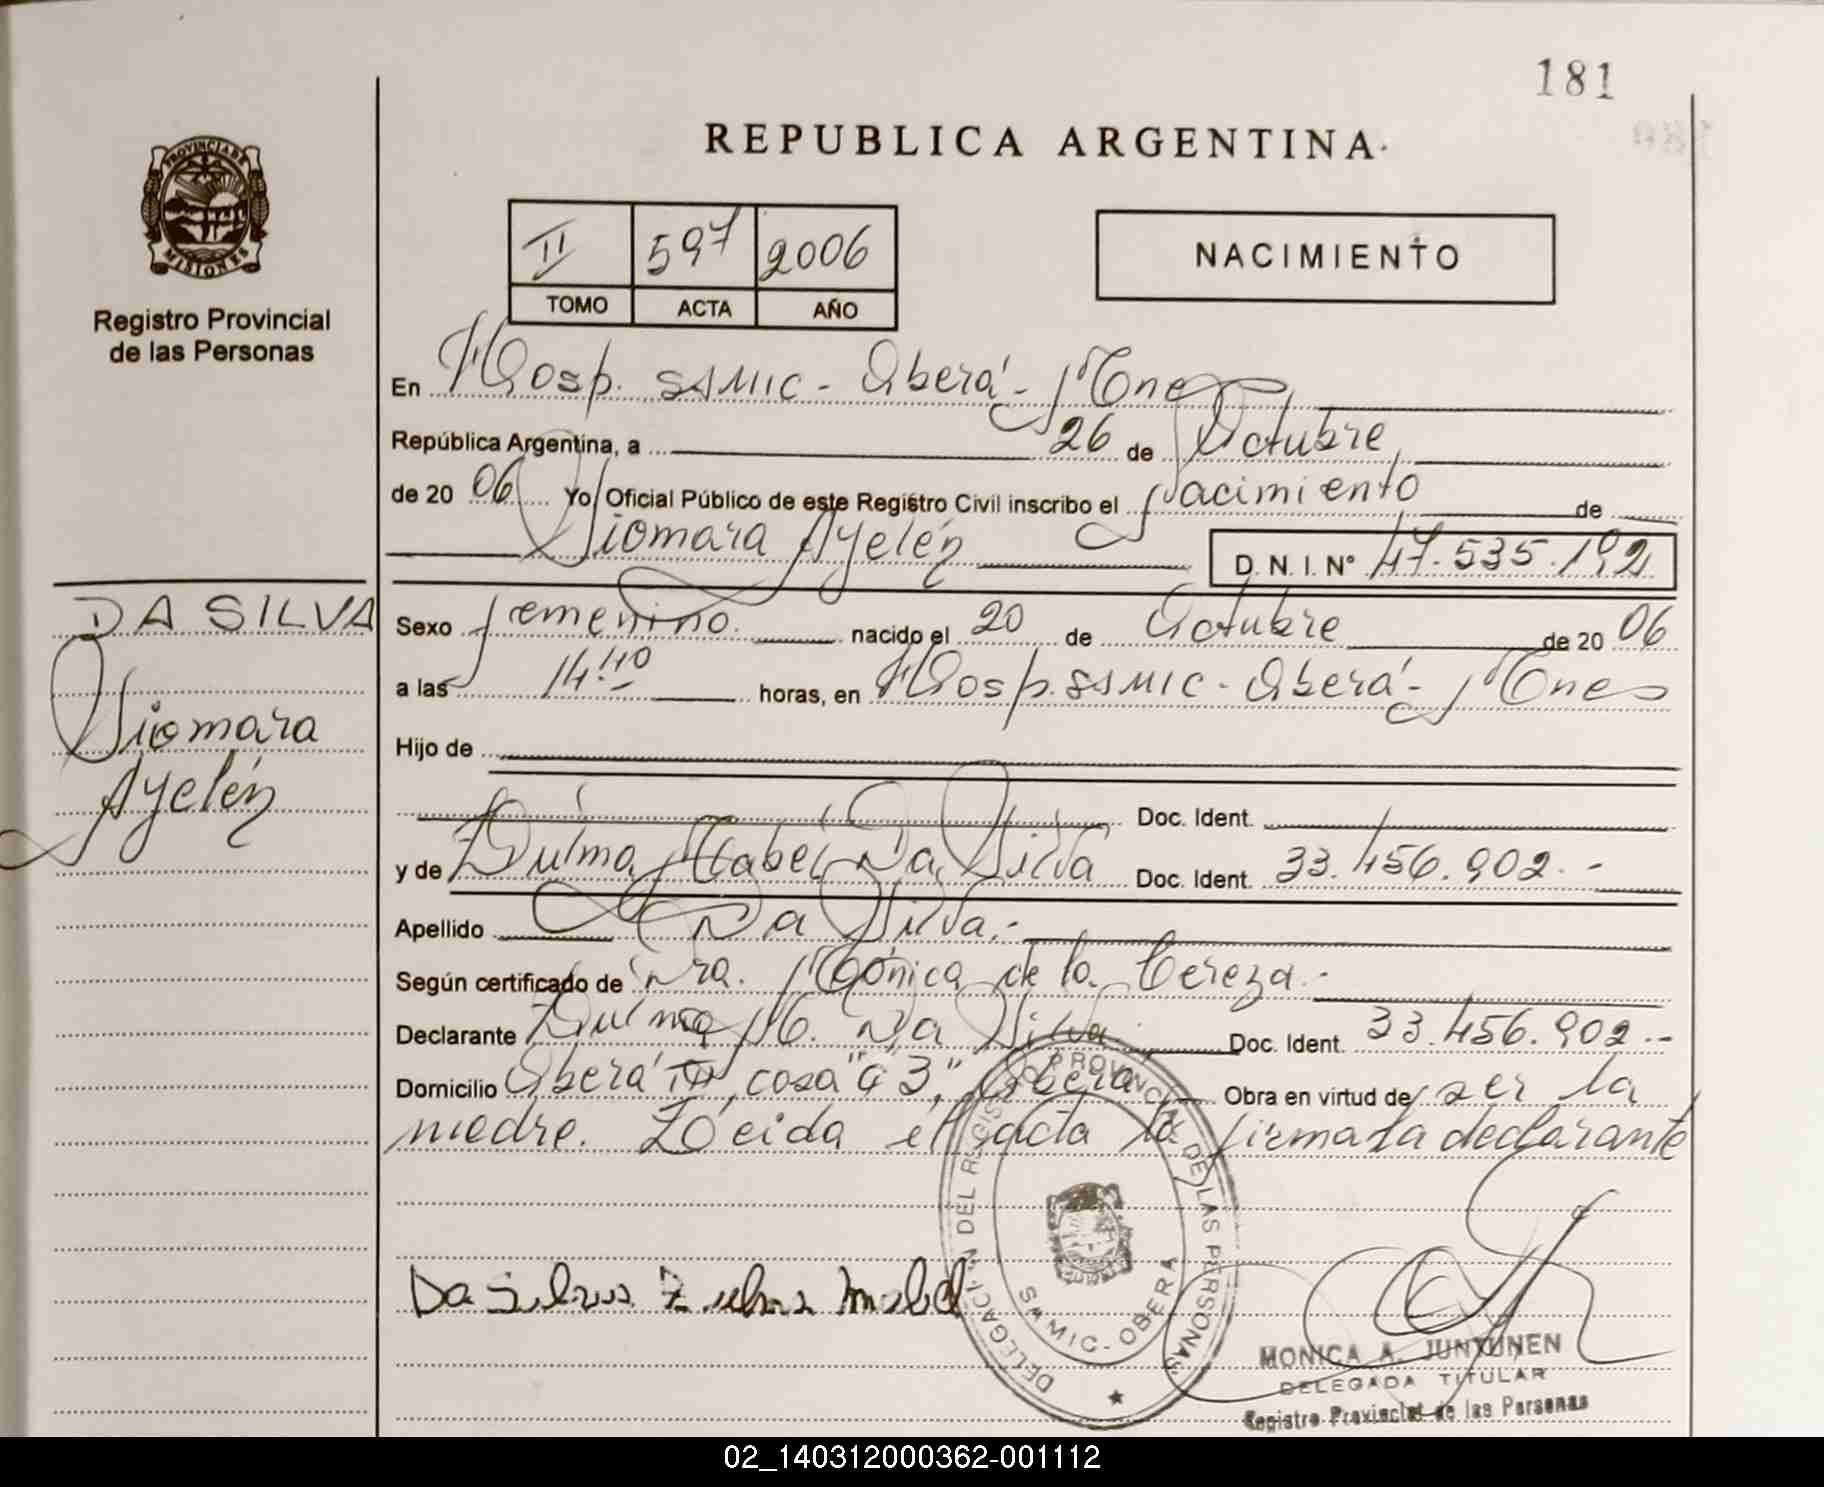 181
REPUBLICA ARGENTINA
PROVINCIA DE
MISIONES
Registro Provincial
de las Personas
II 597 2006
TOMO ACTA AÑO
NACIMIENTO
En Hosp. SAMIC - Oberá - Mnes
República Argentina, a 26 de Octubre
de 20 06 Yo Oficial Público de este Registro Civil inscribo el Nacimiento de
Xiomara Ayelén D. N. I. N° 47.535.192
DA SILVA
Xiomara
Ayelén
Sexo Femenino. nacido el 20 de Octubre de 20 06
a las 14:40 horas, en Hosp. SAMIC - Oberá - Mnes
Hijo de
Doc. Ident.
y de Zulma Mabel Da Silva Doc. Ident. 33.456.902.-
Apellido Da Silva.-
Según certificado de Dra. Mónica de la Cereza.-
Declarante Zulma M. Da Silva Doc. Ident. 33.456.902.--
Domicilio Oberá casa "G 3", Oberá Obra en virtud de ser la
madre. Leída el acta la firma la declarante
Da Silva Zulma Mabel
DELEGACION DEL REGISTRO PROVINCIAL DE LAS PERSONAS
SAMIC - OBERA
MONICA A. JUNTUNEN
DELEGADA TITULAR
Registro Provincial de las Personas
02_140312000362-001112